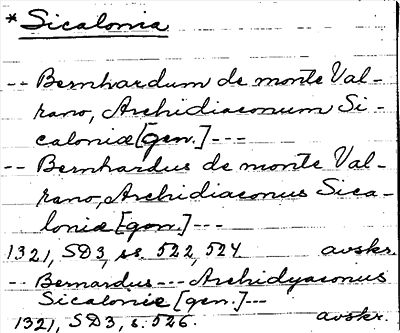 *Sicalonia
-- Bernhardum de monte Val-
rano, Archidiaconum Si-
caloniæ [gen.] ---
-- Bernhardus de monte Val-
rano, Archidiaconus Sica-
loniæ [gen.] ---
1321, SD3, ss. 522, 524. avskr.
-- Bernardus --- Archidyaconus
Sicalonie [gen.] ---
1321, SD3, s. 526. avskr.